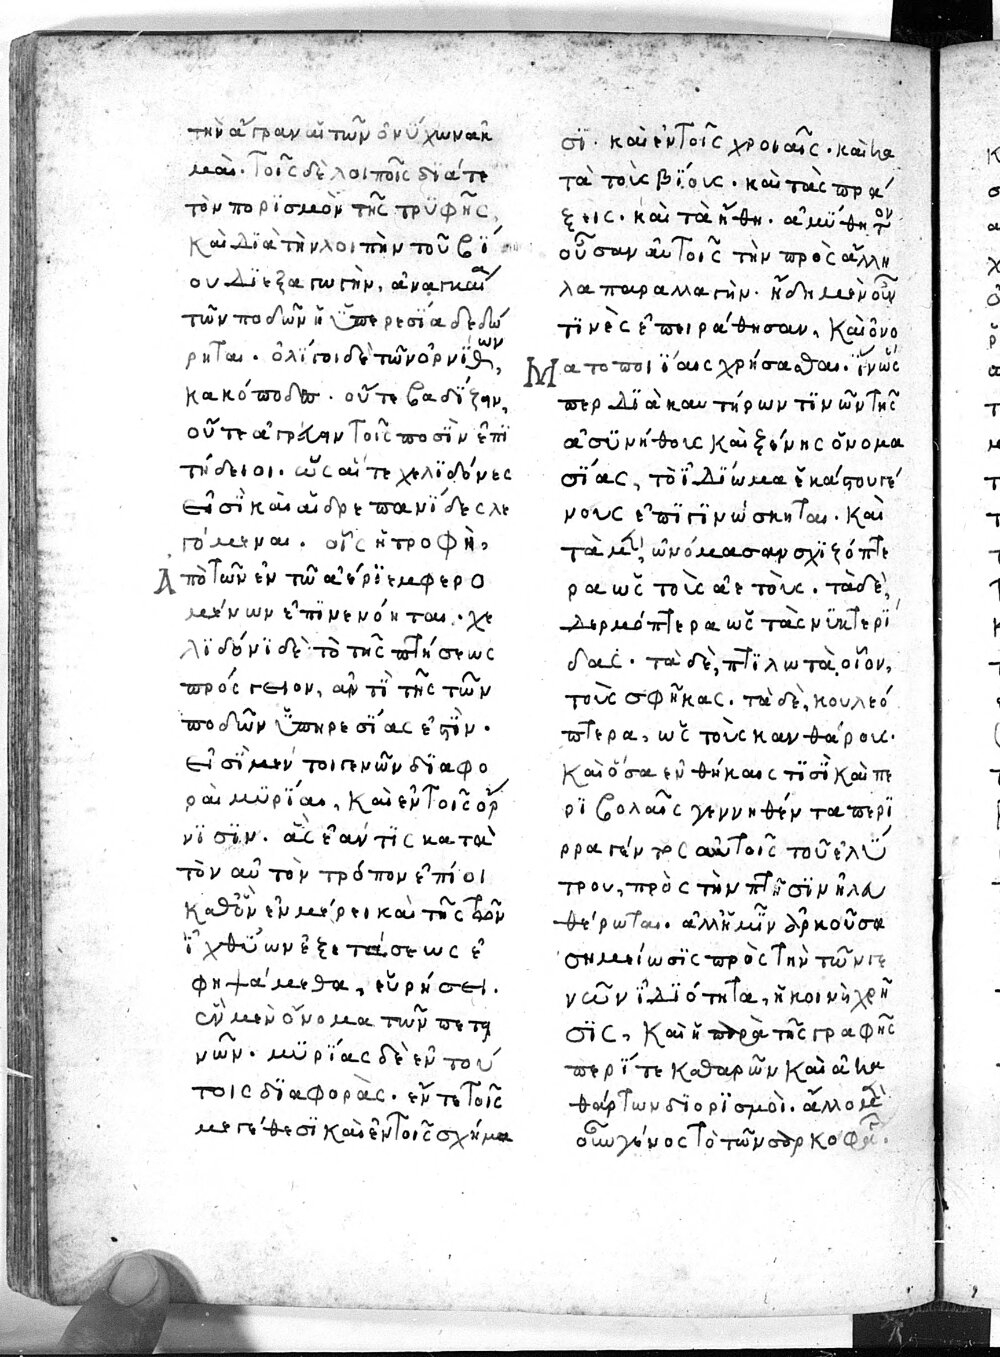 τὴν ἄγραν αἱ τῶν ὀνύχων ἀκ
μαί. Τοῖς δὲ λοιποῖς διά τε
τὸν πορισμὸν τῆς τρυφῆς,
καὶ διὰ τὴν λοιπὴν τοῦ βί
ου διεξαγωγὴν, ἀναγκαί
τῶν ποδῶν ἡ ὑπερεσία δεδώ
ρηται. ὀλίγοι δὲ τῶν ὀρνίθων,
κακόποδες. οὔτε βαδίζειν,
οὔτε ἀγρεύειν τοῖς ποσὶν ἐπι
τήδειοι. ὡς αἵ τε χελιδόνες
εἰσὶ καὶ αἱ δρεπανίδες λε
γόμεναι. οἷς ἡ τροφὴ,
ἀπὸ τῶν ἐν τῷ ἀέρι ἐμφερο
μένων ἐπινενόηται. χε
λιδόνι δὲ τὸ τῆς πτήσεως
πρόσγειον, ἀντὶ τῆς τῶν
ποδῶν ὑπηρεσίας ἐστὶν.
εἰσὶ μέν τοι γενῶν διαφο
ραὶ μυρίαι, καὶ ἐν τοῖς ὄρ
νισιν. ἃς ἐάν τις κατὰ
τὸν αὐτὸν τρόπον ἐπίοι
καθ' ὃν ἐν μέρει καὶ τῆς τῶν
ἰχθύων ἐξετάσεως ἐ
φηψάμεθα, εὑρήσει.
ἓν μὲν ὄνομα τῶν πετει
νῶν. μυρίας δὲ ἐν τού
τοις διαφορὰς. ἔν τε τοῖς
μεγέθεσι καὶ ἐν τοῖς σχήμα
σι. καὶ ἐν τοῖς χροιαῖς. καὶ κα
τὰ τοὺς βίους. καὶ τὰς πρά
ξεις. καὶ τὰ ἤθη. ἀμύθητον
οὖσαν αὐτοῖς τὴν πρὸς ἄλλη
λα παραλλαγήν. ἤδη μὲν οὖν
τινὲς ἐπειράθησαν, καὶ ὀνο
ματοποιίαις χρήσασθαι. ἵν' ὥς
περ διὰ καυτήρων τινῶν τῆς
ἀσυνήθους καὶ ξένης ὀνομα
σίας, τὸ ἰδίωμα ἑκάστου γέ
νους ἐπιγινώσκηται. καὶ
τὰ μὲν, ὠνόμασαν σχιζόπτε
ρα ὡς τοὺς ἀετοὺς. τὰ δὲ,
δερμόπτερα ὡς τὰς νυκτερί
δας. τὰ δὲ, πτιλωτὰ, οἷον,
τοὺς σφῆκας. τὰ δὲ, κουλεό
πτερα, ὡς τοὺς κανθάρους.
καὶ ὅσα ἐν θήκαις τισὶ καὶ πε
ριβολαῖς γεννηθέντα περι
ρραγέντος αὐτοῖς τοῦ ἐλύ
τρου, πρὸς τὴν πτῆσιν ἠλευ
θέρωται. ἀλλ' ἡμῖν ἀρκοῦσα
σημείωσις πρὸς τὴν τῶν γε
νῶν ἰδιότητα, ἡ κοινὴ χρῆ
σις, καὶ ἡ παρὰ τῆς γραφῆς
περί τε καθαρῶν καὶ ἀκα
θάρτων διορισμοί. ἄλλο μὲν
οὖν γένος τὸ τῶν σαρκοφά.